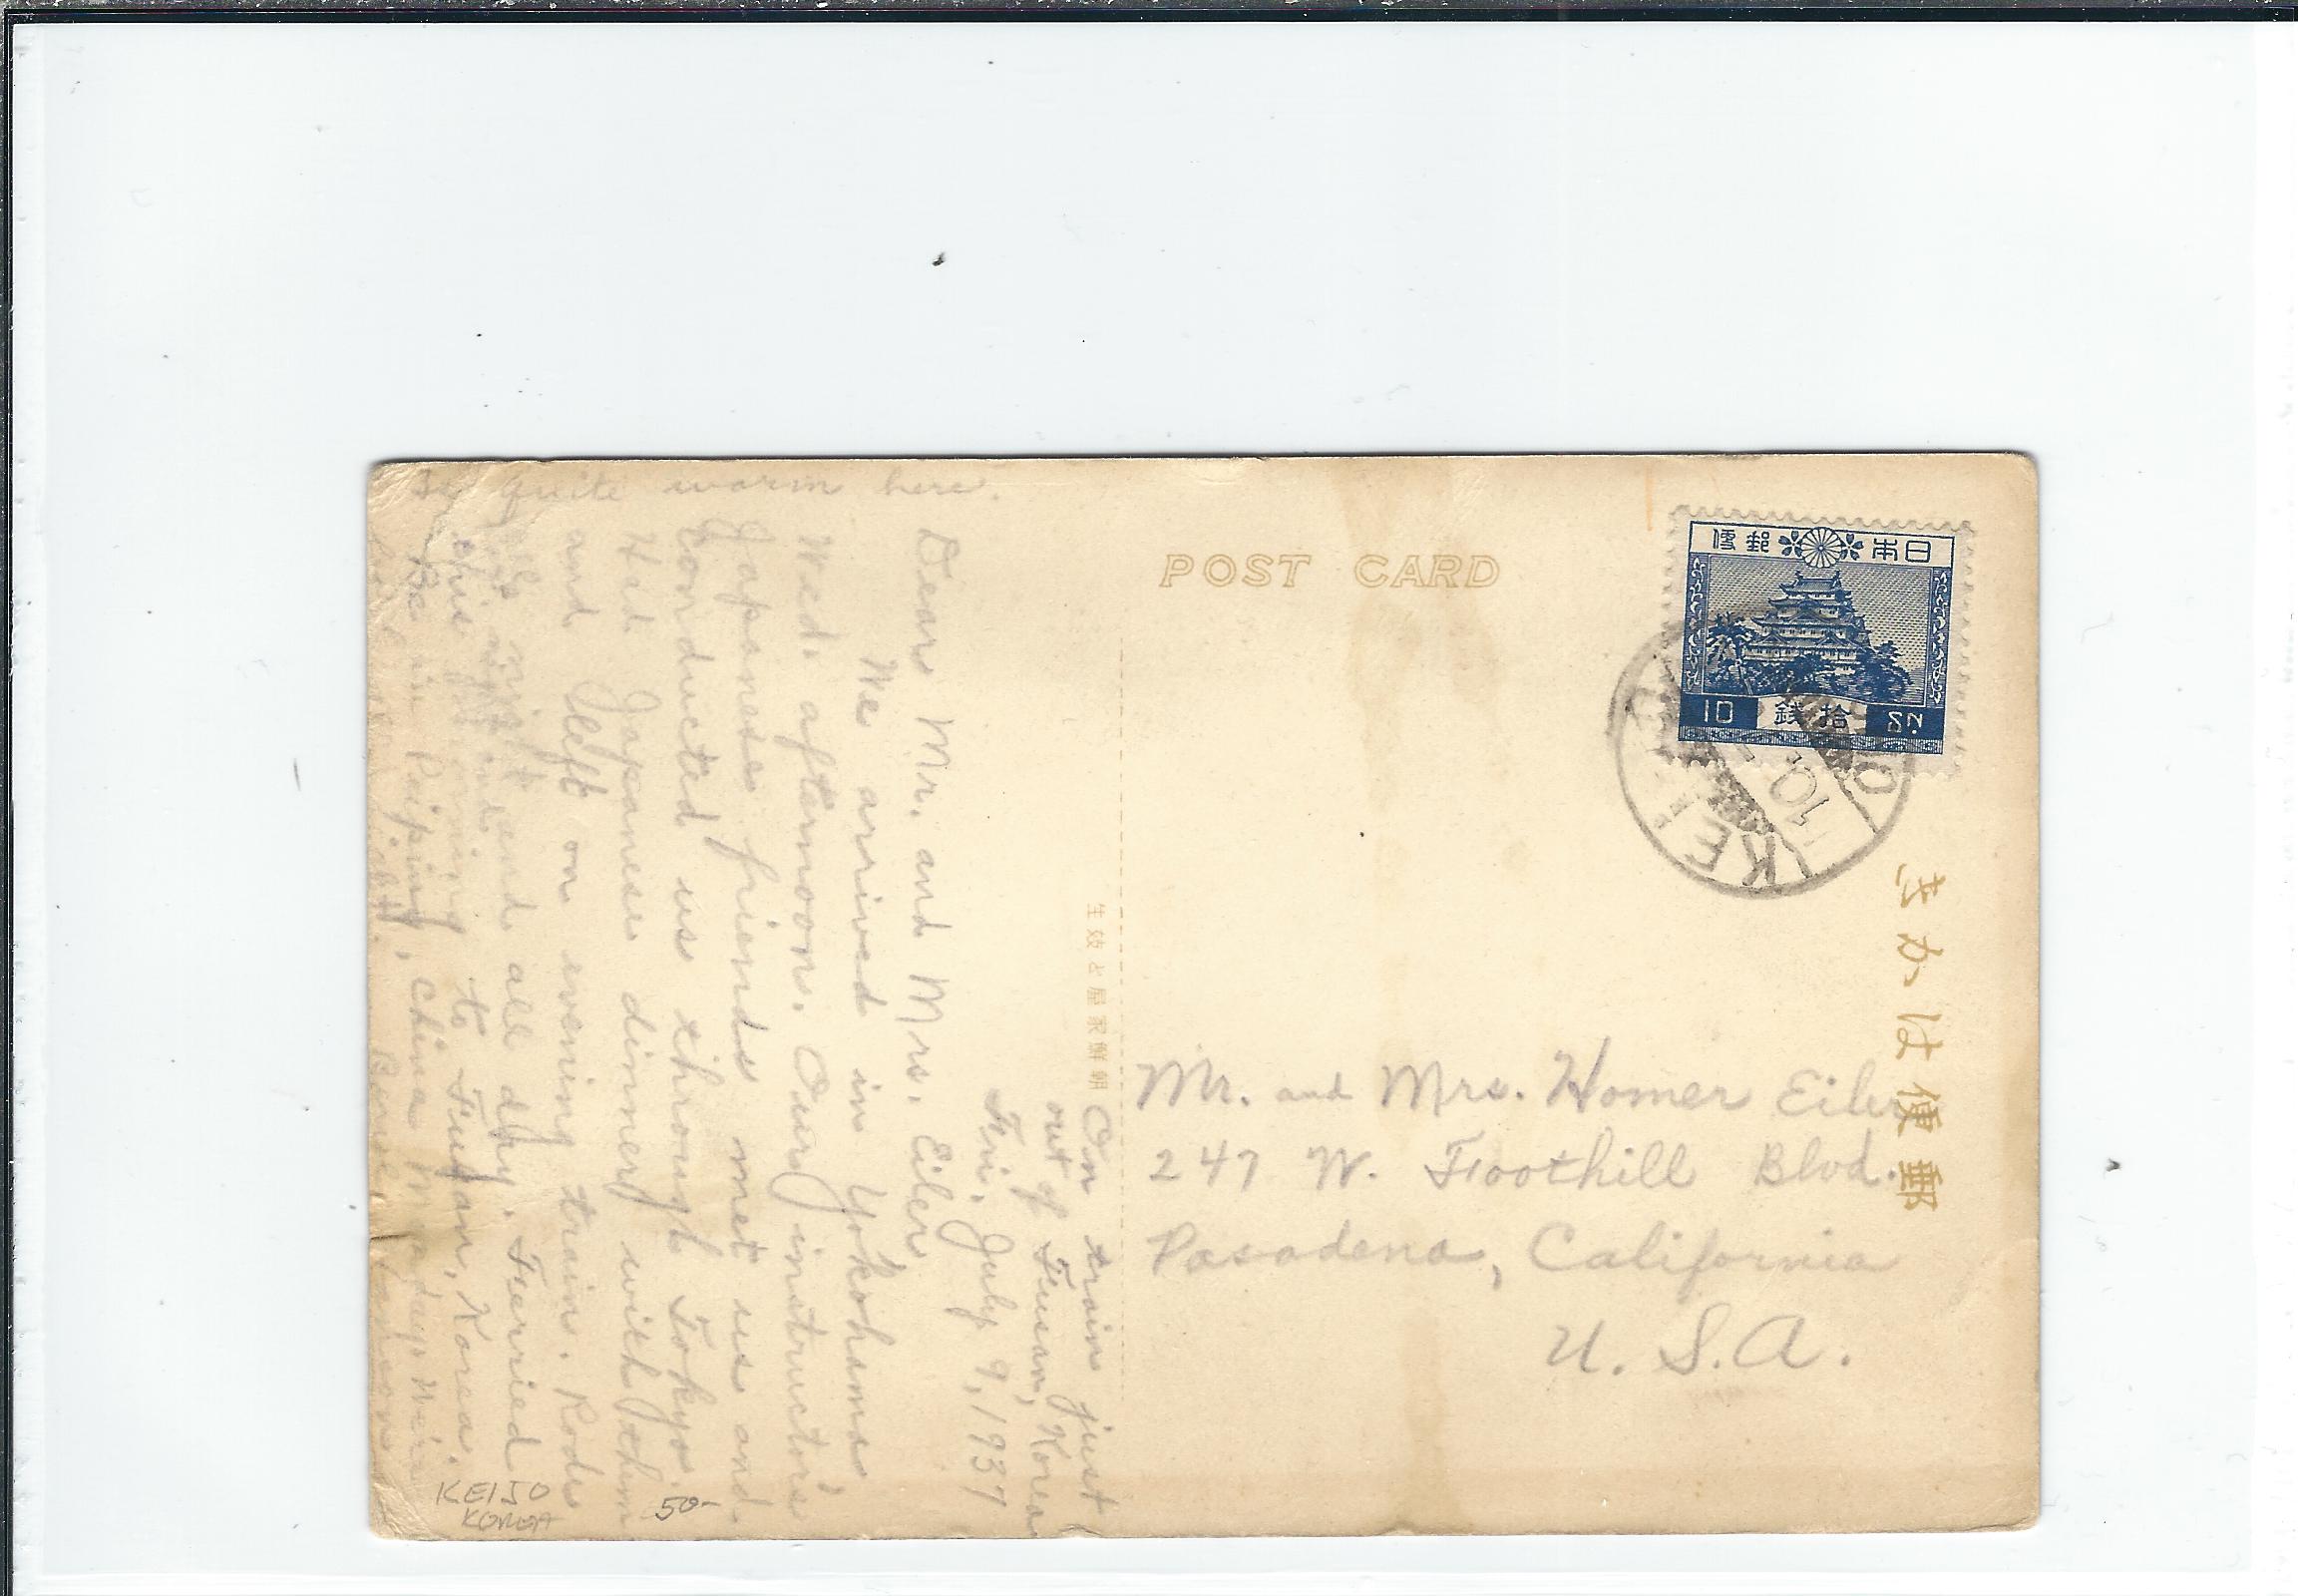 POST CARD
日本 郵便
10 拾銭 SN.
KEIJO
KEI
10.
郵便はかき
朝鮮家屋と妓生
Mr. and Mrs. Homer Eiler
247 W. Foothill Blvd.
Pasadena, California
U. S. A.
On train just
out of Fusan, Korea
Fri. July 9, 1937
Dear Mr. and Mrs. Eiler
We arrived in Yokohama
Wed. afternoon. Our instructor's
Japanese friends met us and
conducted us through Tokyo.
Had Japanese dinner with them
and left on evening train. Rode
all night and all day. Ferried
this to Fusan, Korea.
Be in Peiping, China Monday. We're
quite warm here.
KEIJO
KOREA
50-